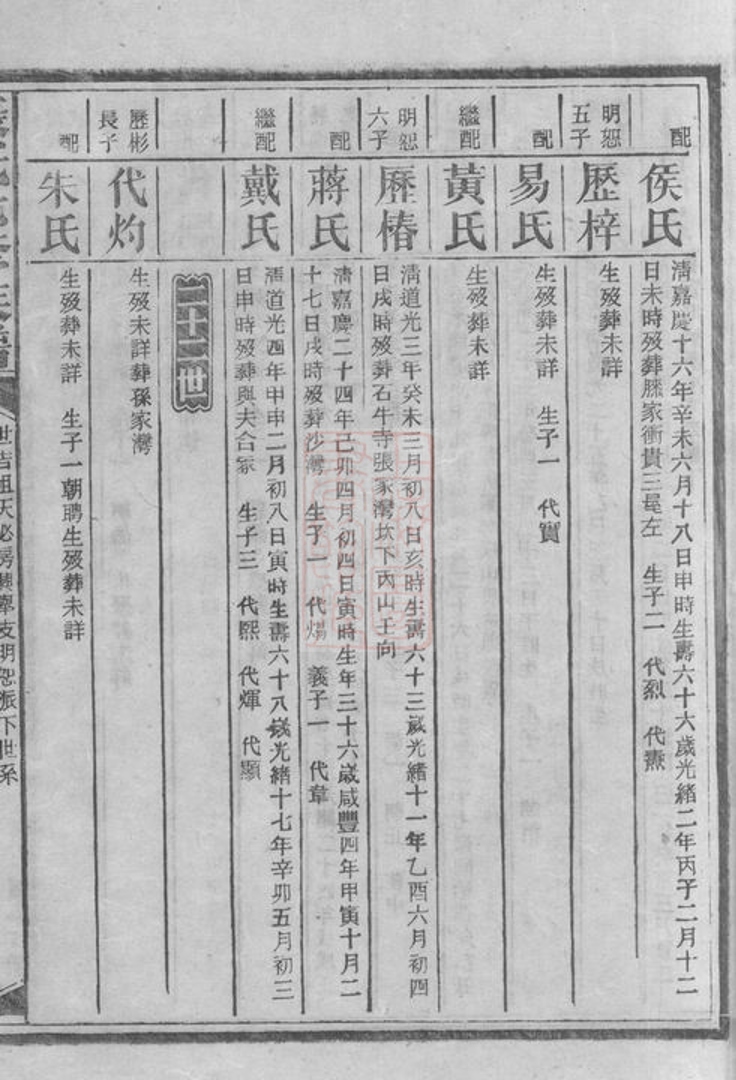 配
侯氏
清嘉慶十六年辛未六月十八日申時生壽六十六歲光緒二年丙子二月十二
日未時歿葬滕家衝貴三髦左 生子二 代烈 代燾
明恕
五子
歷梓
生歿葬未詳
配
易氏
生歿葬未詳 生子一 代寶
繼配
黃氏
生歿葬未詳
明恕
六子
歷椿
清道光三年癸未三月初八日亥時生壽六十三歲光緒十一年乙酉六月初四
日戌時歿葬石牛寺張家灣坎下丙山壬向
配
蔣氏
清嘉慶二十四年己卯四月初四日寅時生年三十六歲咸豐四年甲寅十月二
十七日戌時歿葬沙灣 生子一 代煬 義子一 代葦
繼配
戴氏
清道光四年甲申二月初八日寅時生壽六十八歲光緒十七年辛卯五月初三
日申時歿葬與夫合冢 生子三 代熙 代煇 代顯
二十二世
歷彬
長子
代灼
生歿未詳葬孫家灣
配
朱氏
生歿葬未詳 生子一朝聘生歿葬未詳
世吉祖天必房 支明恕派下世系